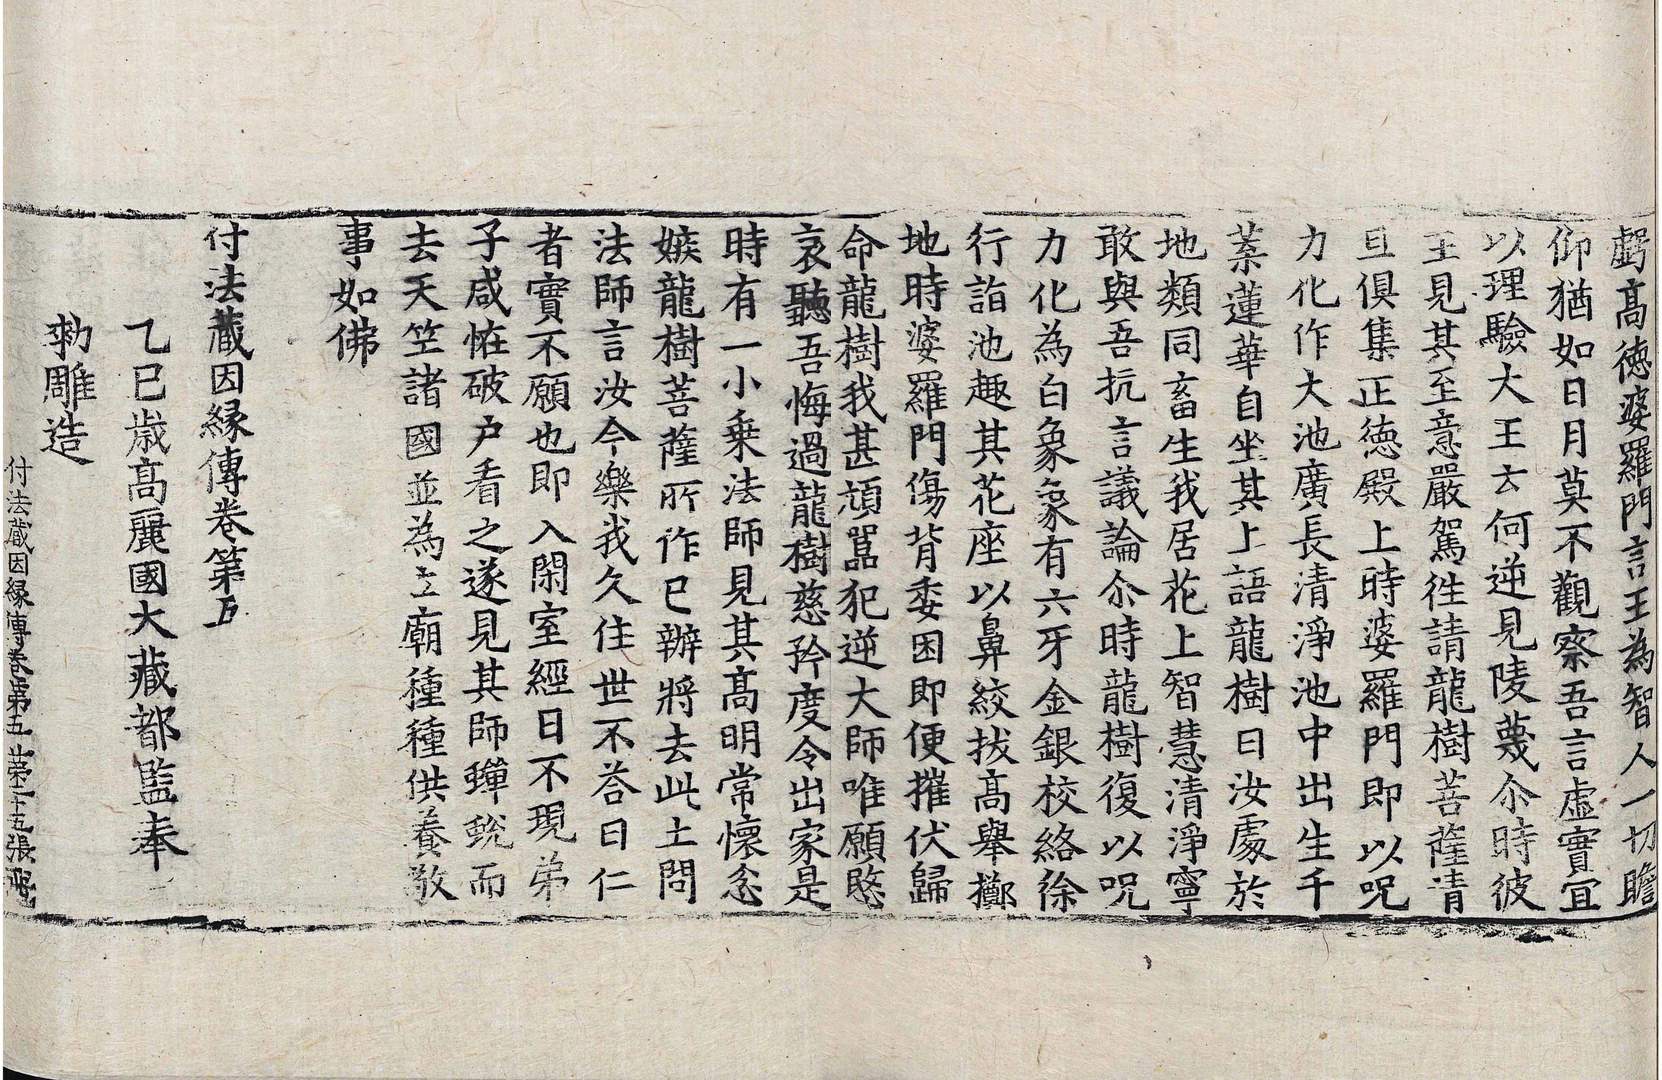 虧髙德婆羅門言王為智人一切瞻
仰猶如日月莫不觀察吾言虛實宜
以理驗大王云何逆見陵蔑尒時彼
王見其至意嚴駕往請龍樹菩薩清
旦俱集正德殿上時婆羅門即以呪
力化作大池廣長清淨池中出生千
葉蓮華自坐其上語龍樹曰汝處於
地類同畜生我居花上智慧清淨寧
敢與吾抗言議論尒時龍樹復以呪
力化為白象象有六牙金銀校絡徐
行詣池趣其花座以鼻絞拔高舉擲
地時婆羅門傷背委困即便摧伏歸
命龍樹我甚頑嚚犯逆大師唯願愍
哀聽吾悔過龍樹慈矜度令出家是
時有一小乗法師見其髙明常懷忿
嫉龍樹菩薩所作已辦將去此土問
法師言汝今樂我久住世不荅曰仁
者實不願也即入閑室經日不現弟
子咸恠破户看之遂見其師蟬蛻而
去天笁諸國並為立廟種種供養敬
事如佛
付法蔵因緣傳卷第五
乙巳歳髙麗國大藏都監奉
勑雕造
付法蔵因縁傳卷第五 第二十五張